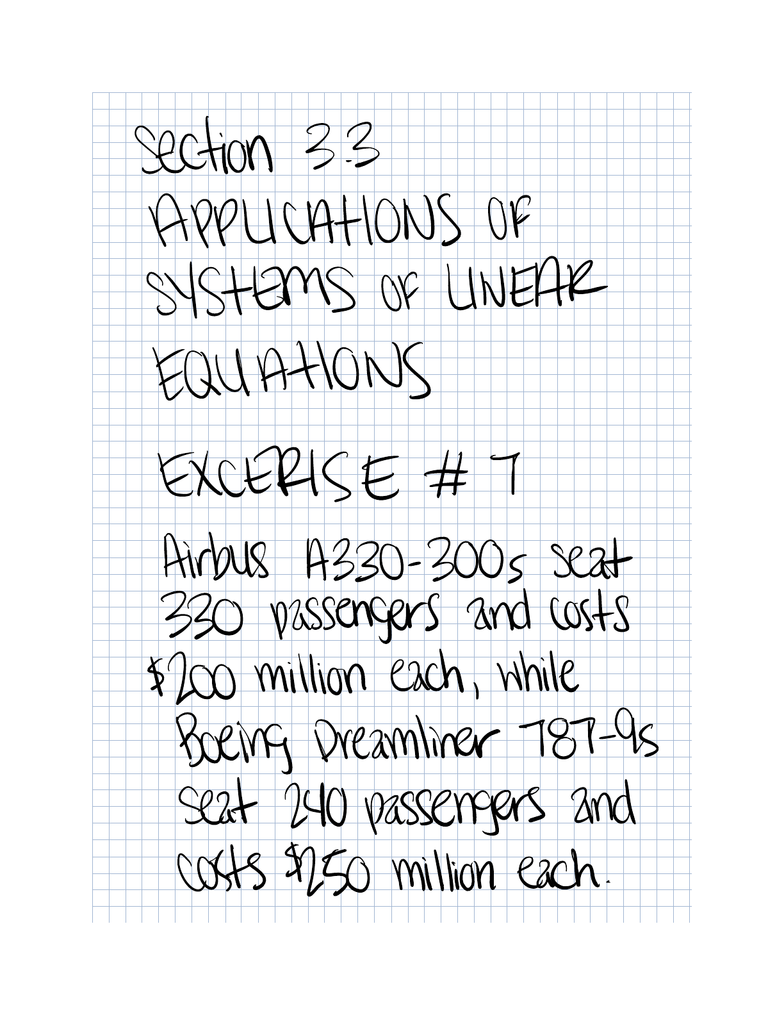 Section 3.3
APPLICATIONS OF
SYSTEMS OF LINEAR
EQUATIONS
EXCERISE # 7
Airbus A330-300s seat
330 passengers and costs
$200 million each, while
Boeing Dreamliner 787-9s
seat 240 passengers and
costs $250 million each.